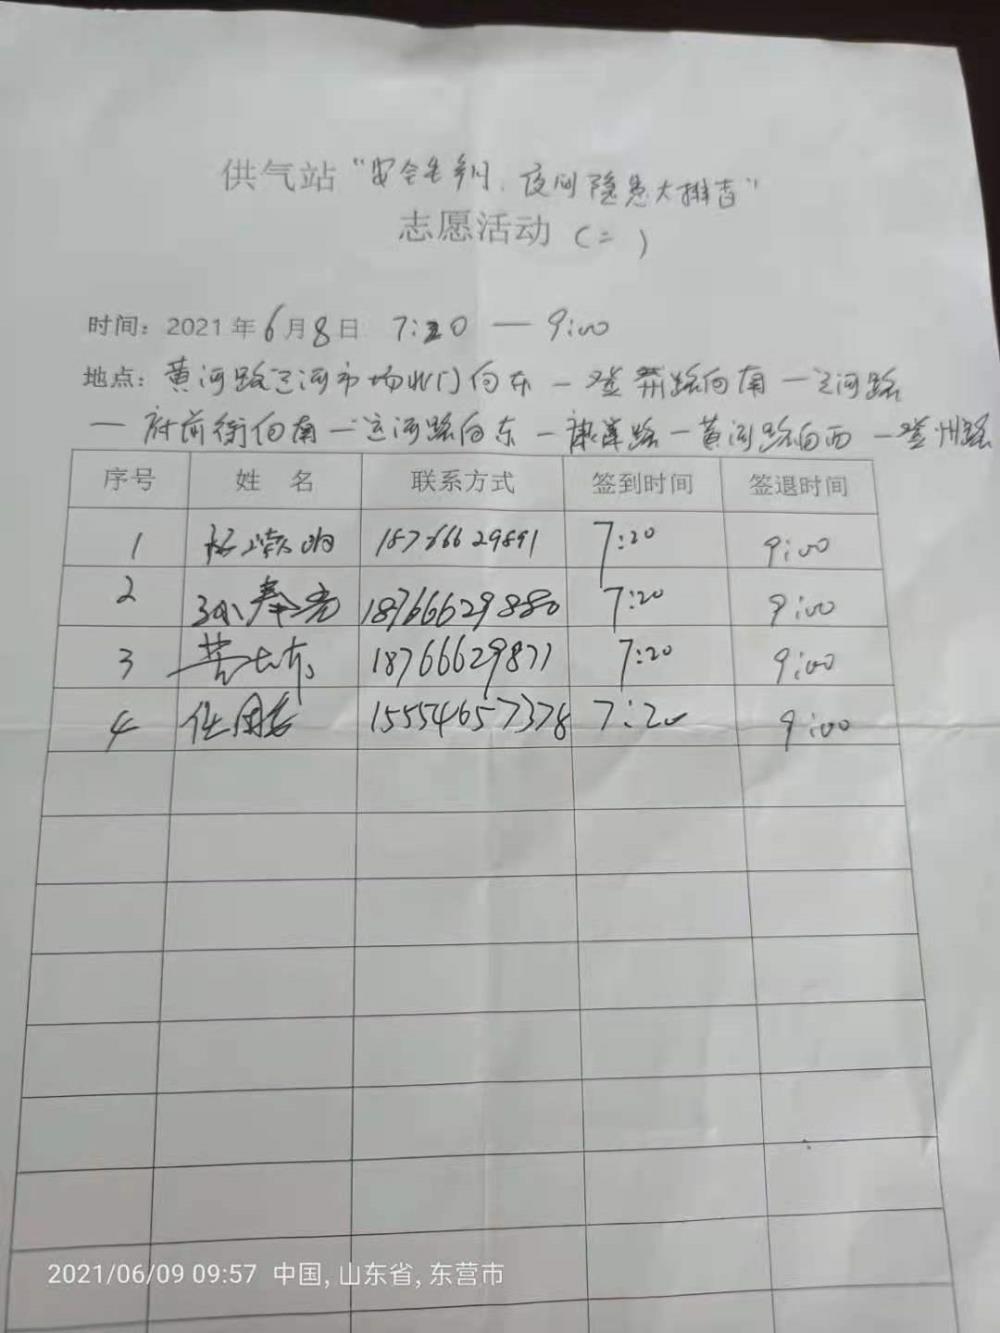 供气站“安全生产月、夜间隐患大排查”
志愿活动(二)
时间:2021年6月8日 7:20 — 9:00
地点:黄河路运河市场北门向东—登州路向南—运河路
—府前街向南—运河路向东——黄河路向西—登州路
序号 姓 名 联系方式 签到时间 签退时间
1 18766629891 7:20 9:00
2 孙奉亮 18766629880 7:20 9:00
3 18766629871 7:20 9:00
4 任国 15554657378 7:20 9:00
2021/06/09 09:57 中国,山东省,东营市